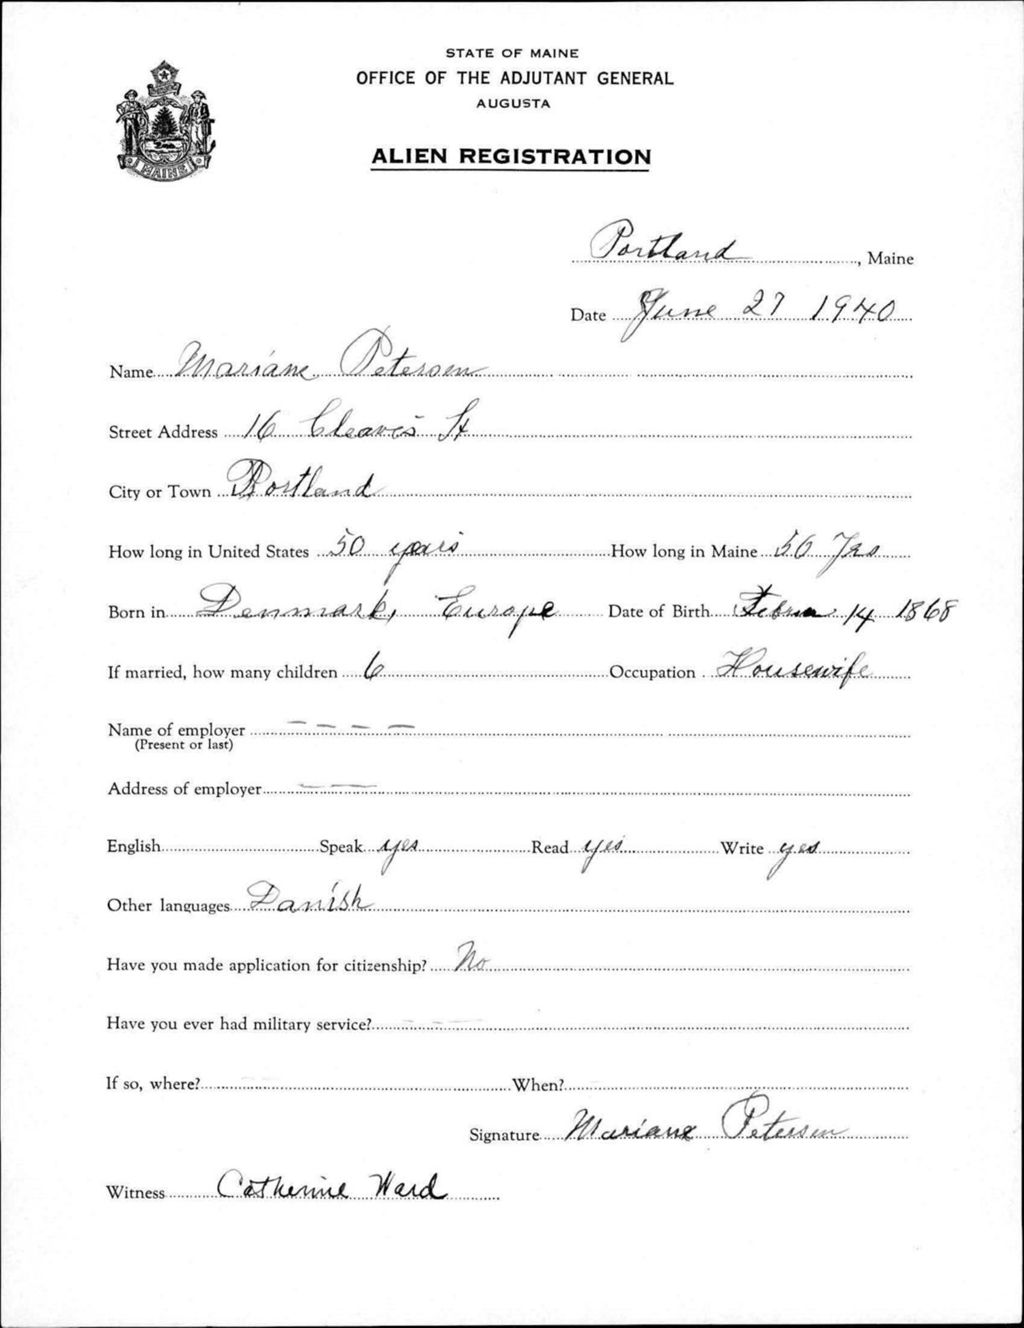 STATE OF MAINE
OFFICE OF THE ADJUTANT GENERAL
AUGUSTA
MAINE
ALIEN REGISTRATION
Portland, Maine
Date June 27 1940
Name Mariane Petersen
Street Address 16 Cleaves St
City or Town Portland
How long in United States 50 years How long in Maine 50 Yrs
Born in Denmark, Europe Date of Birth 14 1868
If married, how many children 6 Occupation Housewife
Name of employer - - - -
(Present or last)
Address of employer - -
English Speak yes Read yes Write yes
Other languages Danish
Have you made application for citizenship? No
Have you ever had military service? - - -
If so, where? When?
Signature Mariane Petersen
Witness Catherine Ward